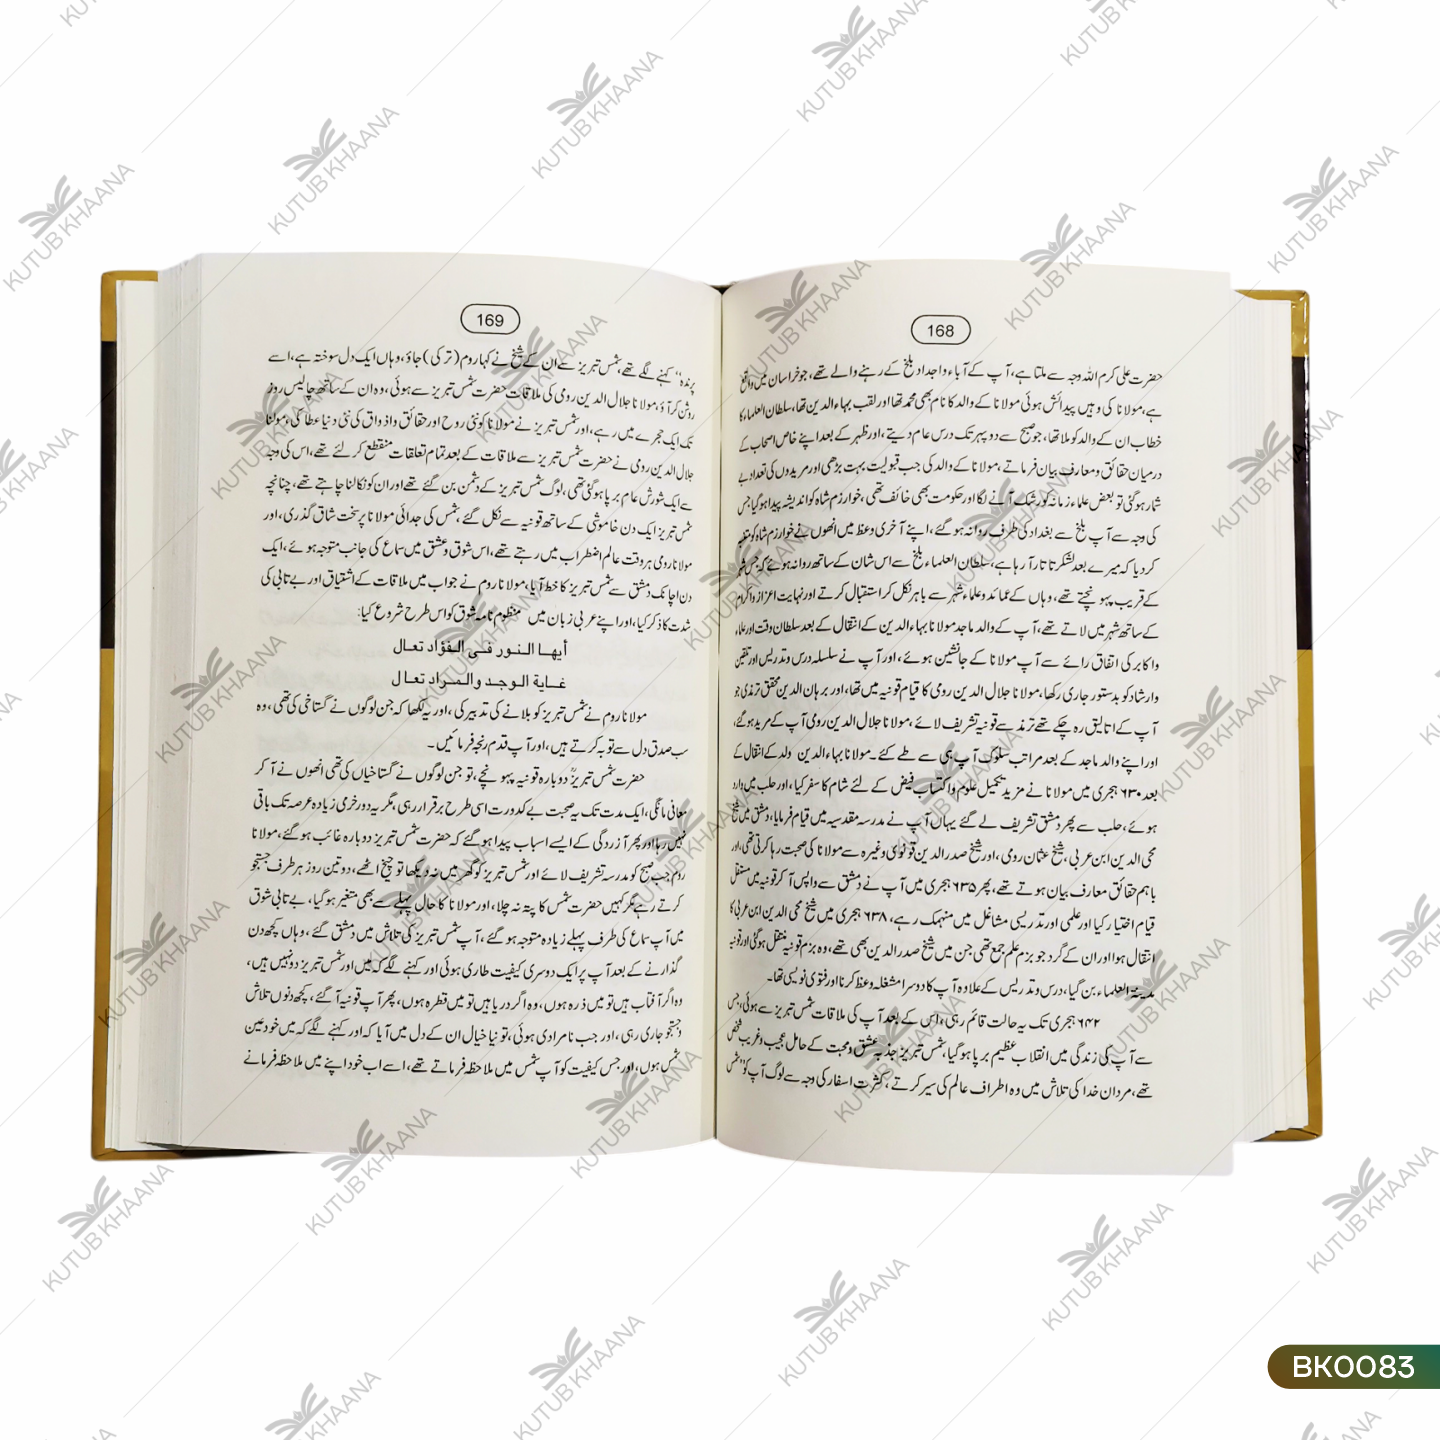 168
حضرت علی کرم اللہ وجہہ سے ملتا ہے، آپ کے آباء و اجداد بلخ کے رہنے والے تھے، جو خراسان میں واقع
ہے، مولانا کی وہیں پیدائش ہوئی مولانا کے والد کا نام بھی محمد تھا اور لقب بہاء الدین تھا، سلطان العلماء کا
خطاب ان کے والد کو ملا تھا، جو صبح سے دوپہر تک درس عام دیتے، اور ظہر کے بعد اپنے خاص اصحاب کے
درمیان حقائق و معارف بیان فرماتے، مولانا کے والد کی جب قبولیت بہت بڑھی اور مریدوں کی تعداد بے
شمار ہوگئی تو بعض علماء زمانہ کو رشک آنے لگا اور حکومت بھی خائف تھی، خوارزم شاہ کو اندیشہ پیدا ہوگیا جس
کی وجہ سے آپ بلخ سے بغداد کی طرف روانہ ہوگئے، اپنے آخری وعظ میں انھوں نے خوارزم شاہ کو متنبہ
کردیا کہ میرے بعد لشکر تاتار آرہا ہے، سلطان العلماء بلخ سے اس شان کے ساتھ روانہ ہوئے کہ جس شہر
کے قریب پہونچتے تھے، وہاں کے عمائد و علماء شہر سے باہر نکل کر استقبال کرتے اور نہایت اعزاز و اکرام
کے ساتھ شہر میں لاتے تھے، آپ کے والد ماجد مولانا بہاء الدین کے انتقال کے بعد سلطان وقت اور علماء
و اکابر کی اتفاق رائے سے آپ مولانا کے جانشین ہوئے، اور آپ نے سلسلہ درس و تدریس اور تلقین
وارشاد کو بدستور جاری رکھا، مولانا جلال الدین رومی کا قیام قونیہ میں تھا، اور برہان الدین محقق ترمذی جو
آپ کے اتالیق رہ چکے تھے ترمذ سے قونیہ تشریف لائے، مولانا جلال الدین رومی آپ کے مرید ہوگئے،
اور اپنے والد ماجد کے بعد مراتب سلوک آپ ہی سے طے کئے۔ مولانا بہاء الدین ولد کے انتقال کے
بعد ۶۳۰ ہجری میں مولانا نے مزید تکمیل علوم و اکتساب فیض کے لئے شام کا سفر کیا، اور حلب میں وارد
ہوئے، حلب سے پھر دمشق تشریف لے گئے یہاں آپ نے مدرسہ مقدسیہ میں قیام فرمایا، دمشق میں شیخ
محی الدین ابن عربی، شیخ عثمان رومی، اور شیخ صدر الدین قونوی وغیرہ سے مولانا کی صحبت رہا کرتی تھی، اور
باہم حقائق معارف بیان ہوتے تھے، پھر ۶۳۵ ہجری میں آپ نے دمشق سے واپس آکر قونیہ میں مستقل
قیام اختیار کیا اور علمی اور تدریسی مشاغل میں منہمک رہے، ۶۳۸ ہجری میں شیخ محی الدین ابن عربی کا
انتقال ہوا اور ان کے گرد جو بزم علم جمع تھی جن میں شیخ صدر الدین بھی تھے، وہ بزم قونیہ منتقل ہوگئی اور قونیہ
مدینۃ العلماء بن گیا، درس و تدریس کے علاوہ آپ کا دوسرا مشغلہ وعظ کرنا اور فتویٰ نویسی تھا۔
۶۴۲ ہجری تک یہ حالت قائم رہی، اس کے بعد آپ کی ملاقات شمس تبریز سے ہوئی، جس
سے آپ کی زندگی میں انقلاب عظیم برپا ہوگیا، شمس تبریز جذبہ عشق و محبت کے حامل عجیب و غریب شخص
تھے، مردان خدا کی تلاش میں وہ اطراف عالم کی سیر کرتے، کثرت اسفار کی وجہ سے لوگ آپ کو "شمس
169
پرندہ" کہنے لگے تھے، شمس تبریز سے ان کے شیخ نے کہا روم (ترکی) جاؤ، وہاں ایک دل سوختہ ہے، اسے
روشن کر آؤ، مولانا جلال الدین رومی کی ملاقات حضرت شمس تبریز سے ہوئی، وہ ان کے ساتھ چالیس روز
تک ایک حجرے میں رہے، اور شمس تبریز نے مولانا کو نئی روح اور حقائق و اذواق کی نئی دنیا عطا کی، مولانا
جلال الدین رومی نے حضرت شمس تبریز سے ملاقات کے بعد تمام تعلقات منقطع کر لئے تھے، اس کی وجہ
سے ایک شورش عام برپا ہوگئی تھی، لوگ شمس تبریز کے دشمن بن گئے تھے اور ان کو نکالنا چاہتے تھے، چنانچہ
شمس تبریز ایک دن خاموشی کے ساتھ قونیہ سے نکل گئے، شمس کی جدائی مولانا پر سخت شاق گذری، اور
مولانا رومی ہر وقت عالم اضطراب میں رہتے تھے، اس شوق و عشق میں سماع کی جانب متوجہ ہوئے، ایک
دن اچانک دمشق سے شمس تبریز کا خط آیا، مولانا روم نے جواب میں ملاقات کے اشتیاق اور بے تابی کی
شدت کا ذکر کیا، اور اپنے عربی زبان میں منظوم نامہ شوق کو اس طرح شروع کیا:
أيها النور فی الفؤاد تعال
غاية الوجد والمراد تعال
مولانا روم نے شمس تبریز کو بلانے کی تدبیر کی، اور یہ لکھا کہ جن لوگوں نے گستاخی کی تھی، وہ
سب صدق دل سے توبہ کرتے ہیں، اور آپ قدم رنجہ فرمائیں۔
حضرت شمس تبریزؒ دوبارہ قونیہ پہونچے، تو جن لوگوں نے گستاخیاں کی تھی انھوں نے آکر
معافی مانگی، ایک مدت تک یہ صحبت بے کدورت اسی طرح برقرار رہی، مگر یہ دور خرمی زیادہ عرصہ تک باقی
نہیں رہا اور پھر آزردگی کے ایسے اسباب پیدا ہوگئے کہ حضرت شمس تبریز دوبارہ غائب ہوگئے، مولانا
روم جب صبح کو مدرسہ تشریف لائے اور شمس تبریز کو گھر میں نہ دیکھا تو چیخ اٹھے، دو تین روز ہر طرف جستجو
کرتے رہے مگر کہیں حضرت شمس کا پتہ نہ چلا، اور مولانا کا حال پہلے سے بھی متغیر ہوگیا، بے تابی شوق
میں آپ سماع کی طرف پہلے زیادہ متوجہ ہوگئے، آپ شمس تبریز کی تلاش میں دمشق گئے، وہاں کچھ دن
گذارنے کے بعد آپ پر ایک دوسری کیفیت طاری ہوئی اور کہنے لگے کہ میں اور شمس تبریز دو نہیں ہیں،
وہ اگر آفتاب ہیں تو میں ذرہ ہوں، وہ اگر دریا ہیں تو میں قطرہ ہوں، پھر آپ قونیہ آگئے، کچھ دنوں تلاش
و جستجو جاری رہی، اور جب نامرادی ہوئی، تو نیا خیال ان کے دل میں آیا کہ اور کہنے لگے کہ میں خود عین
شمس ہوں، اور جس کیفیت کو آپ شمس میں ملاحظہ فرماتے تھے، اسے اب خود اپنے میں ملاحظہ فرمانے
KUTUB KHAANA
BK0083